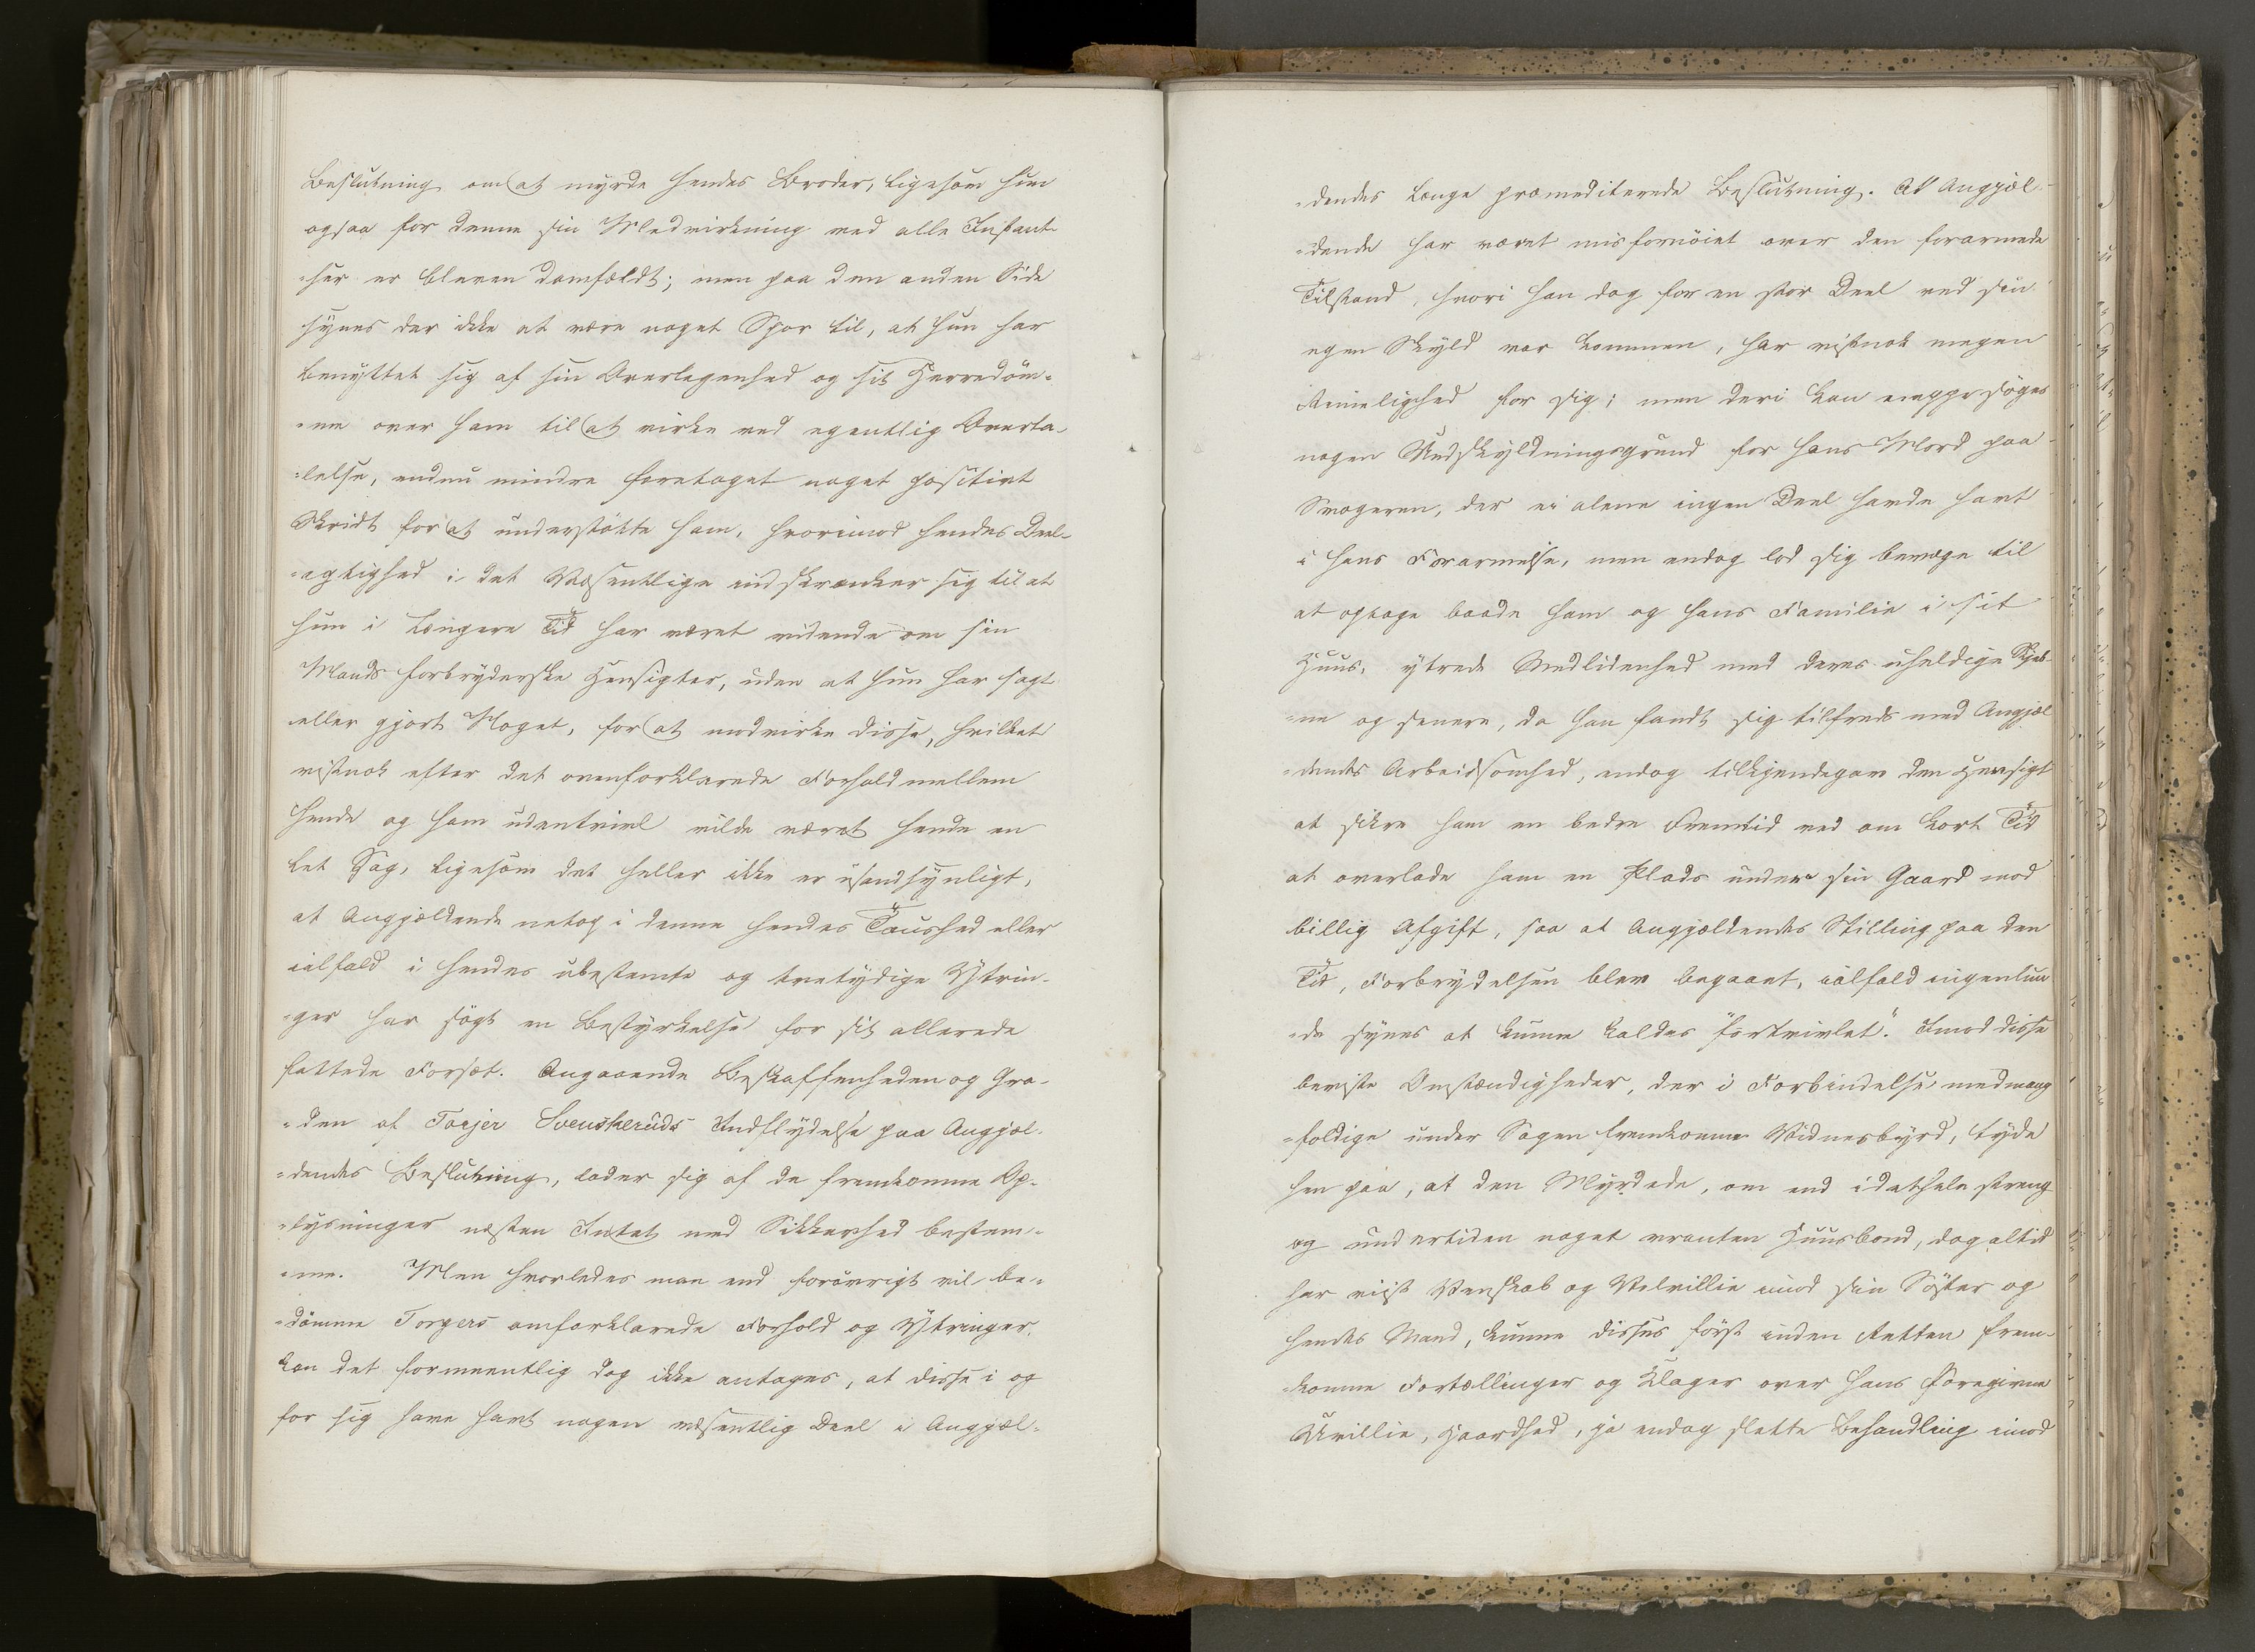 Beslutning om at myrde hendes Broder, ligesom hun
ogsaa for denne sin Medvirkning ved alle Instant-
-ser er bleven domfældt; men paa den anden Side
synes der ikke at være noget Spor til, at hun har
benyttet sig af sin Overlegenhed og sit Herredöm-
-me over ham til at virke ved egentlig Overta-
-lelse, endnu mindre foretaget noget positivt
Skridt for at understötte ham, hvorimod hendes Deel-
-agtighed i det Væsentlige indskrænker sig til at
hun i længere Tid har været vidende om sin
Mands forbryderske Hensigter, uden at hun har sagt
eller gjort Noget, for at modvirke disse, hvilket
vistnok efter det ovenforklarede Forhold mellem
hende og ham udentvivl vilde været hende en
let Sag, ligesom det heller ikke er usandsynligt,
at Angjældende netop i denne hendes Taushed eller
ialfald i hendes ubestemte og tvetydige Ytrin-
-ger har sögt en Bestyrkelse for sit allerede
fattede Forsæt. Angaaende Beskaffenheden og Gra-
-den af Torjer Svenskeruds Indflydelse paa Angjæl-
-dendes Beslutning, lader sig af de fremkomne Op-
-lysninger næsten Intet med Sikkerhed bestem-
-me. Men hvorledes man end forövrigt vil be-
-dömme Torgers omforklarede Forhold og Ytringer,
kan det formeentlig dog ikke antages, at disse i og
for sig have havt nogen væsentlig Deel i Angjæl-
-dendes længe præmediterede Beslutning. At Angjæl-
-dende har været misfornöiet over den forarmede
Tilstand, hvori han dog for en stor Deel ved sin
egen Skyld var kommen, har vistnok megen
Rimelighed for sig; men deri kan neppe söges
nogen Undskyldningsgrund for hans Mord paa
Svogeren, der ei alene ingen Deel havde havt
i hans Forarmelse, men endog lod sig bevæge til
at optage baade ham og hans Familie i sit
Huus, ytrede Medlidenhed med deres uheldige Skjæb-
-ne og senere, da han fandt sig tilfreds med Angjæl
-dendes Arbeidsomhed, endog tilkjendegav den Hensigt
at sikre ham en bedre Fremtid ved om kort Tid
at overlade ham en Plads under sin Gaard mod
billig Afgift, saa at Angjældendes Stilling paa den
Tid, Forbrydelsen blev begaaet, ialfald ingenlun
-de synes at kunne kaldes "fortvivlet". Imod disse
beviste Omstændigheder, der i Forbindelse med mang
-foldige under Sagen fremkomne Vidnesbyrd, tyde
hen paa, at den Myrdede, om end idethele streng
og undertiden noget vranten Huusbond, dog altid
har viist Venskab og Velvillie imod sin Söster og
hendes Mand, kunne disses först inden Retten frem-
-komne Fortællinger og Klager over hans foregivne
Uvillie, Haardhed, ja endog slette Behandling imod